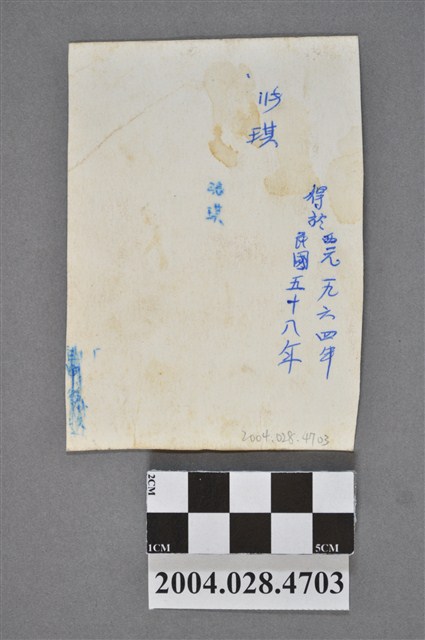 得於西元一九六四年
民國五十八年
琪
琪
2004.028.4703
2CM
1CM
5CM
2004.028.4703